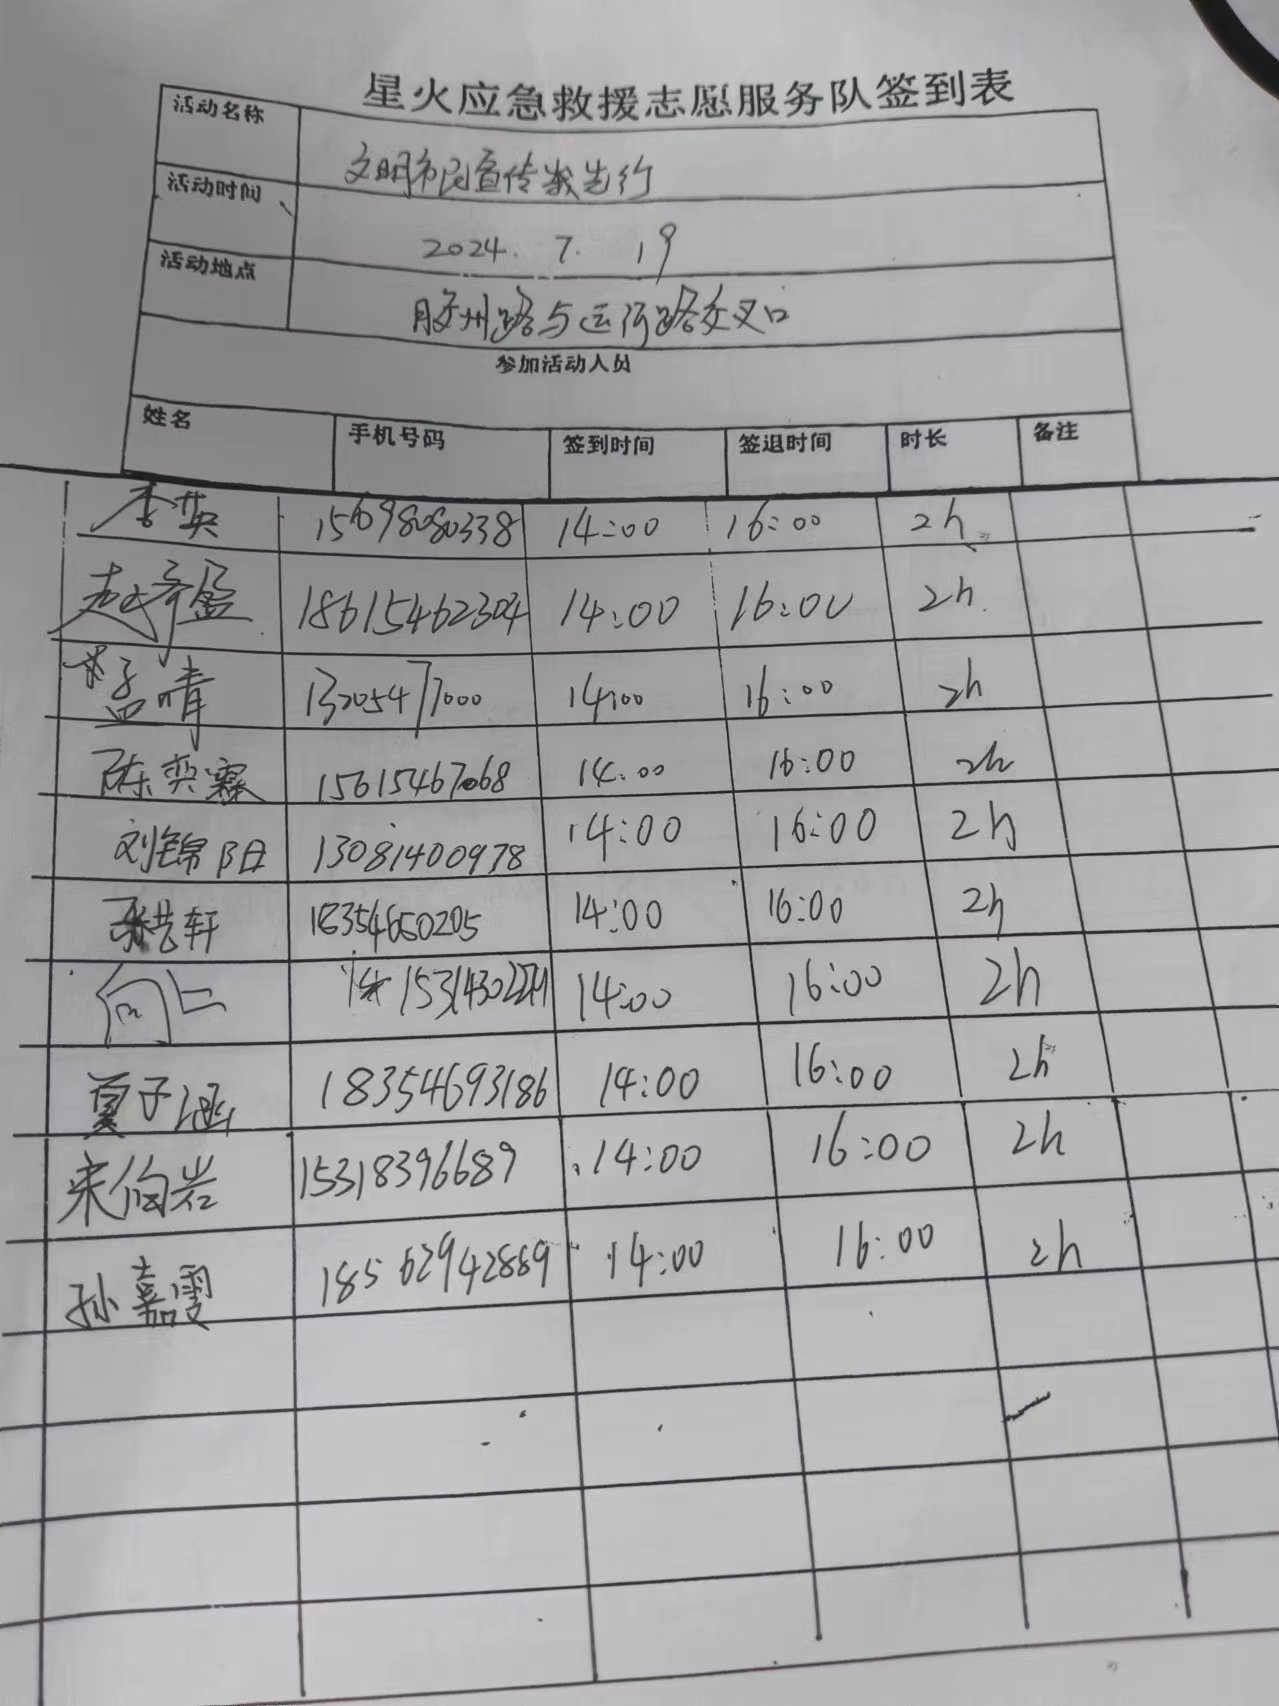 星火应急救援志愿服务队签到表
活动名称 文明市民宣传我先行
活动时间 2024. 7. 19
活动地点 胶州路与运河路交叉口
参加活动人员
姓名 手机号码 签到时间 签退时间 时长 备注
李英 15698080338 14:00 16:00 2h
赵奇盈 18615462304 14:00 16:00 2h
孟晴 13205477000 14:00 16:00 2h
陈奕霖 15615467068 14:00 16:00 2h
刘锦阳 13081400978 14:00 16:00 2h
张艺轩 18354650205 14:00 16:00 2h
向仁 14:00 16:00 2h
夏子涵 18354693186 14:00 16:00 2h
宋俊岩 15318396689 14:00 16:00 2h
孙嘉雯 18562942869 14:00 16:00 2h